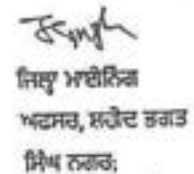 ਜਿਲ੍ਹਾ ਮਾਈਨਿੰਗ
ਅਫਸਰ, ਸ਼ਹੀਦ ਭਗਤ
ਸਿੰਘ ਨਗਰ;